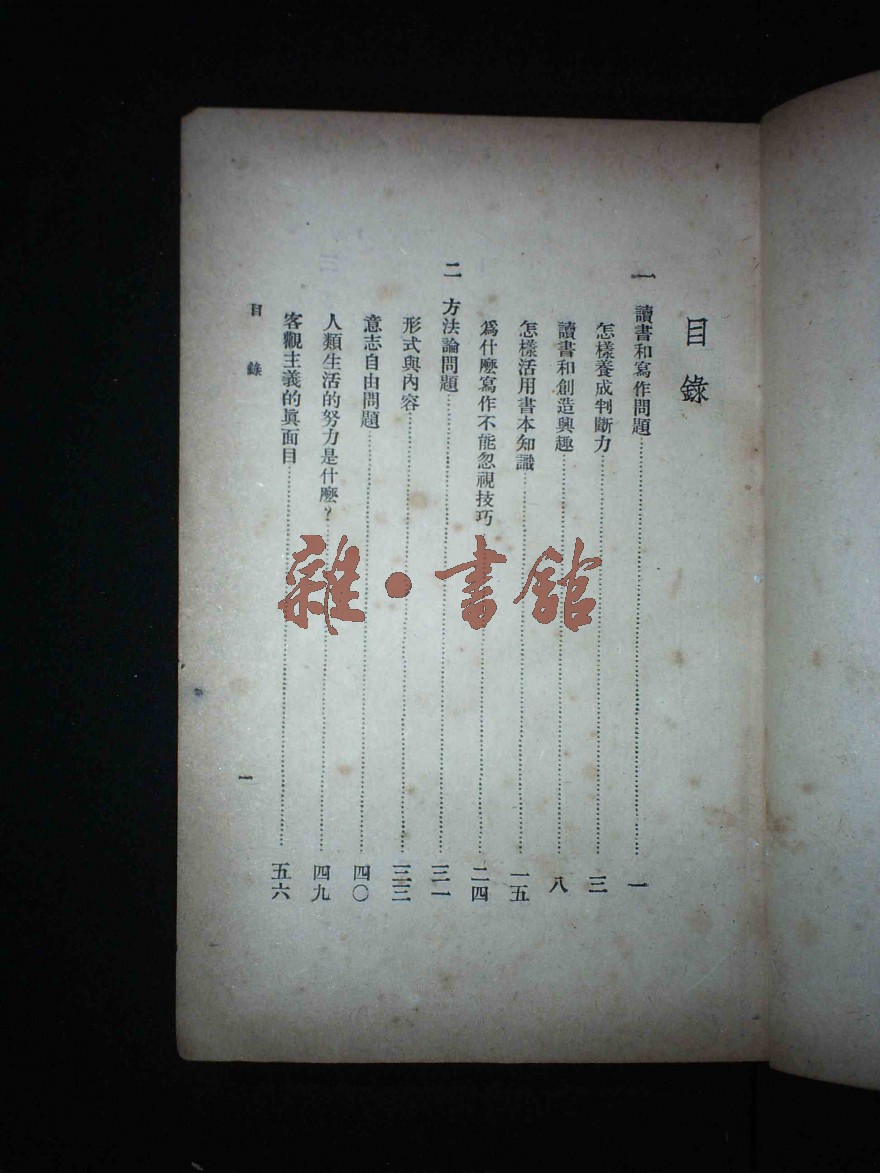 目錄
一 讀書和寫作問題……一
怎樣養成判斷力……三
讀書和創造興趣……八
怎樣活用書本知識……一五
爲什麼寫作不能忽視技巧……二四
二 方法論問題……三一
形式與內容……三三
意志自由問題……四〇
人類生活的努力是什麼？……四九
客觀主義的眞面目……五六
目錄
一
雜·書館